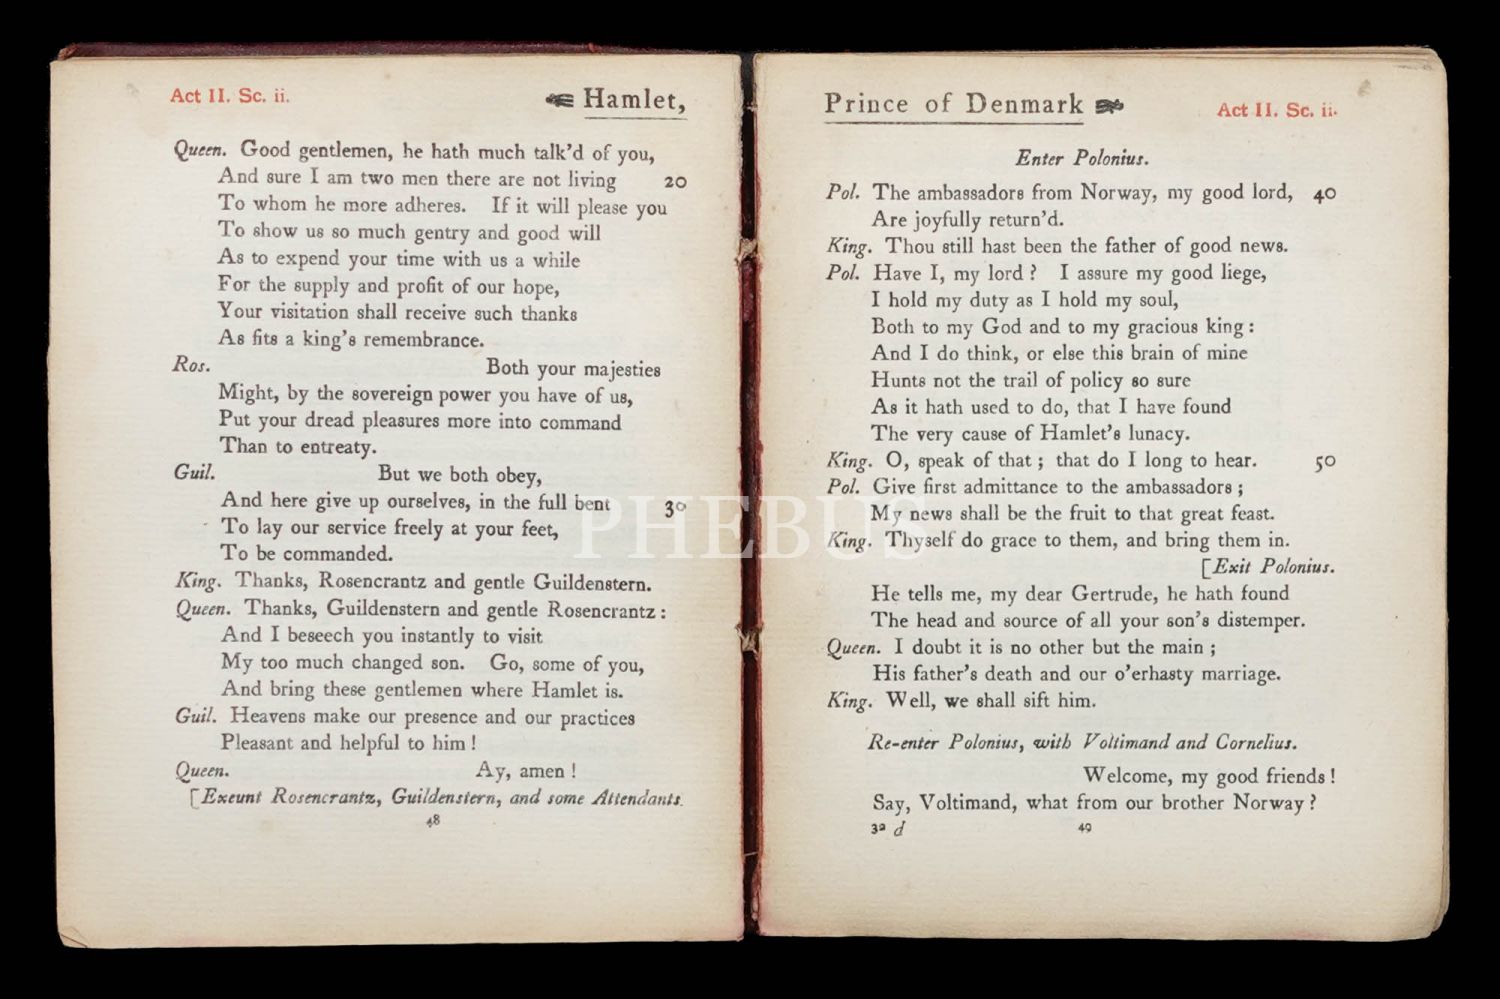 Act II. Sc. ii.
Hamlet,
Queen. Good gentlemen, he hath much talk'd of you,
And sure I am two men there are not living 20
To whom he more adheres. If it will please you
To show us so much gentry and good will
As to expend your time with us a while
For the supply and profit of our hope,
Your visitation shall receive such thanks
As fits a king's remembrance.
Ros. Both your majesties
Might, by the sovereign power you have of us,
Put your dread pleasures more into command
Than to entreaty.
Guil. But we both obey,
And here give up ourselves, in the full bent 30
To lay our service freely at your feet,
To be commanded.
King. Thanks, Rosencrantz and gentle Guildenstern.
Queen. Thanks, Guildenstern and gentle Rosencrantz:
And I beseech you instantly to visit
My too much changed son. Go, some of you,
And bring these gentlemen where Hamlet is.
Guil. Heavens make our presence and our practices
Pleasant and helpful to him!
Queen. Ay, amen!
[Exeunt Rosencrantz, Guildenstern, and some Attendants.
48
Prince of Denmark
Act II. Sc. ii.
Enter Polonius.
Pol. The ambassadors from Norway, my good lord, 40
Are joyfully return'd.
King. Thou still hast been the father of good news.
Pol. Have I, my lord? I assure my good liege,
I hold my duty as I hold my soul,
Both to my God and to my gracious king:
And I do think, or else this brain of mine
Hunts not the trail of policy so sure
As it hath used to do, that I have found
The very cause of Hamlet's lunacy.
King. O, speak of that; that do I long to hear. 50
Pol. Give first admittance to the ambassadors;
My news shall be the fruit to that great feast.
King. Thyself do grace to them, and bring them in.
[Exit Polonius.
He tells me, my dear Gertrude, he hath found
The head and source of all your son's distemper.
Queen. I doubt it is no other but the main;
His father's death and our o'erhasty marriage.
King. Well, we shall sift him.
Re-enter Polonius, with Voltimand and Cornelius.
Welcome, my good friends!
Say, Voltimand, what from our brother Norway?
32 d 49
PHEBUS